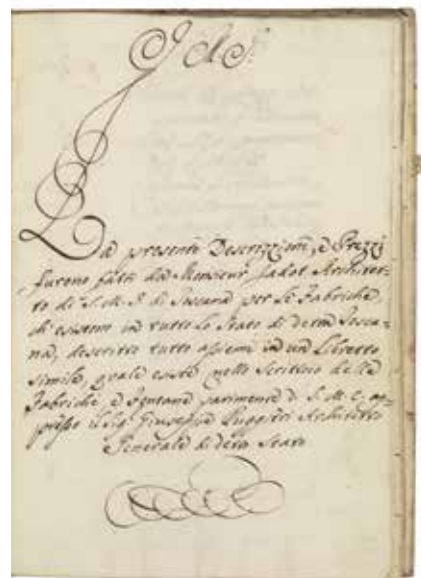 La presente Descrizzione, e Prezzi
furono fatti da Monsieur Jadot Architet-
to di S. M. I. di Toscana per le Fabriche,
ch'esistono in tutto lo Stato di detta Tosca-
na, descritto tutto assieme in un Libretto
simile, quale esiste nello Scrittoio delle
Fabriche e Fontane parimente di S. M. C. ap-
presso il Sig. Giuseppe Ruggieri Architetto
Generale di detto Stato